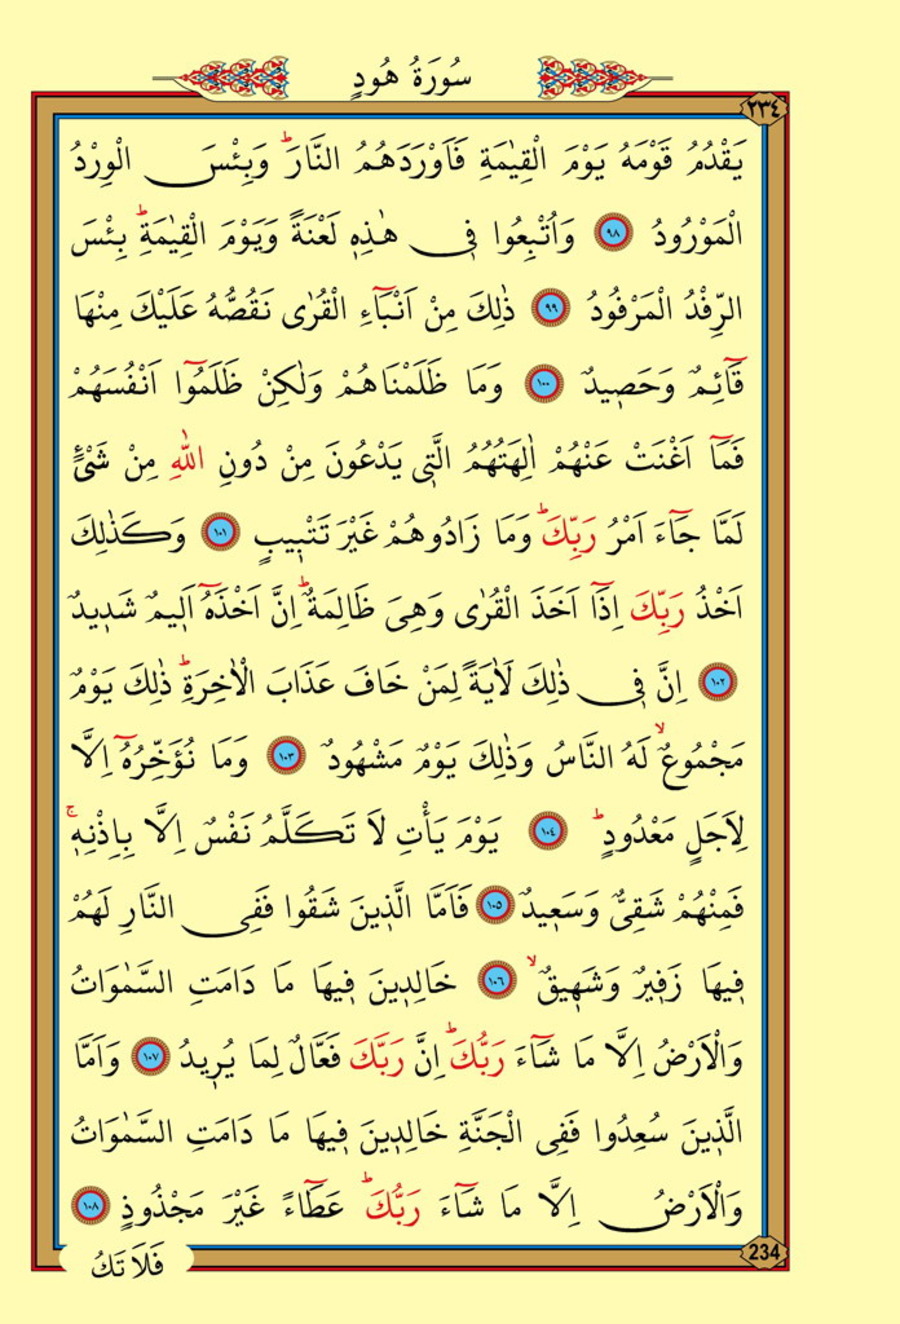 سُورَةُ هُودٍ
٢٣٤
يَقْدُمُ قَوْمَهُ يَوْمَ الْقِيٰمَةِ فَاَوْرَدَهُمُ النَّارَۜ وَبِئْسَ الْوِرْدُ
الْمَوْرُودُ ٩٨ وَاُتْبِعُوا ف۪ي هٰذِه۪ لَعْنَةً وَيَوْمَ الْقِيٰمَةِۜ بِئْسَ
الرِّفْدُ الْمَرْفُودُ ٩٩ ذٰلِكَ مِنْ اَنْبَٓاءِ الْقُرٰى نَقُصُّهُ عَلَيْكَ مِنْهَا
قَٓائِمٌ وَحَص۪يدٌ ١٠٠ وَمَا ظَلَمْنَاهُمْ وَلٰكِنْ ظَلَمُٓوا اَنْفُسَهُمْ
فَمَٓا اَغْنَتْ عَنْهُمْ اٰلِهَتُهُمُ الَّت۪ي يَدْعُونَ مِنْ دُونِ اللّٰهِ مِنْ شَيْءٍ
لَمَّا جَٓاءَ اَمْرُ رَبِّكَۜ وَمَا زَادُوهُمْ غَيْرَ تَتْب۪يبٍ ١٠١ وَكَذٰلِكَ
اَخْذُ رَبِّكَ اِذَٓا اَخَذَ الْقُرٰى وَهِيَ ظَالِمَةٌۜ اِنَّ اَخْذَهُٓ اَل۪يمٌ شَد۪يدٌ
١٠٢ اِنَّ ف۪ي ذٰلِكَ لَاٰيَةً لِمَنْ خَافَ عَذَابَ الْاٰخِرَةِۜ ذٰلِكَ يَوْمٌ
مَجْمُوعٌۙ لَهُ النَّاسُ وَذٰلِكَ يَوْمٌ مَشْهُودٌ ١٠٣ وَمَا نُؤَخِّرُهُٓ اِلَّا
لِاَجَلٍ مَعْدُودٍۜ ١٠٤ يَوْمَ يَأْتِ لَا تَكَلَّمُ نَفْسٌ اِلَّا بِاِذْنِه۪ۚ
فَمِنْهُمْ شَقِيٌّ وَسَع۪يدٌ ١٠٥ فَاَمَّا الَّذ۪ينَ شَقُوا فَفِي النَّارِ لَهُمْ
ف۪يهَا زَف۪يرٌ وَشَه۪يقٌۙ ١٠٦ خَالِد۪ينَ ف۪يهَا مَا دَامَتِ السَّمٰوَاتُ
وَالْاَرْضُ اِلَّا مَا شَٓاءَ رَبُّكَۜ اِنَّ رَبَّكَ فَعَّالٌ لِمَا يُر۪يدُ ١٠٧ وَاَمَّا
الَّذ۪ينَ سُعِدُوا فَفِي الْجَنَّةِ خَالِد۪ينَ ف۪يهَا مَا دَامَتِ السَّمٰوَاتُ
وَالْاَرْضُ اِلَّا مَا شَٓاءَ رَبُّكَۜ عَطَٓاءً غَيْرَ مَجْذُوذٍ ١٠٨
234
فَلَا تَكُ